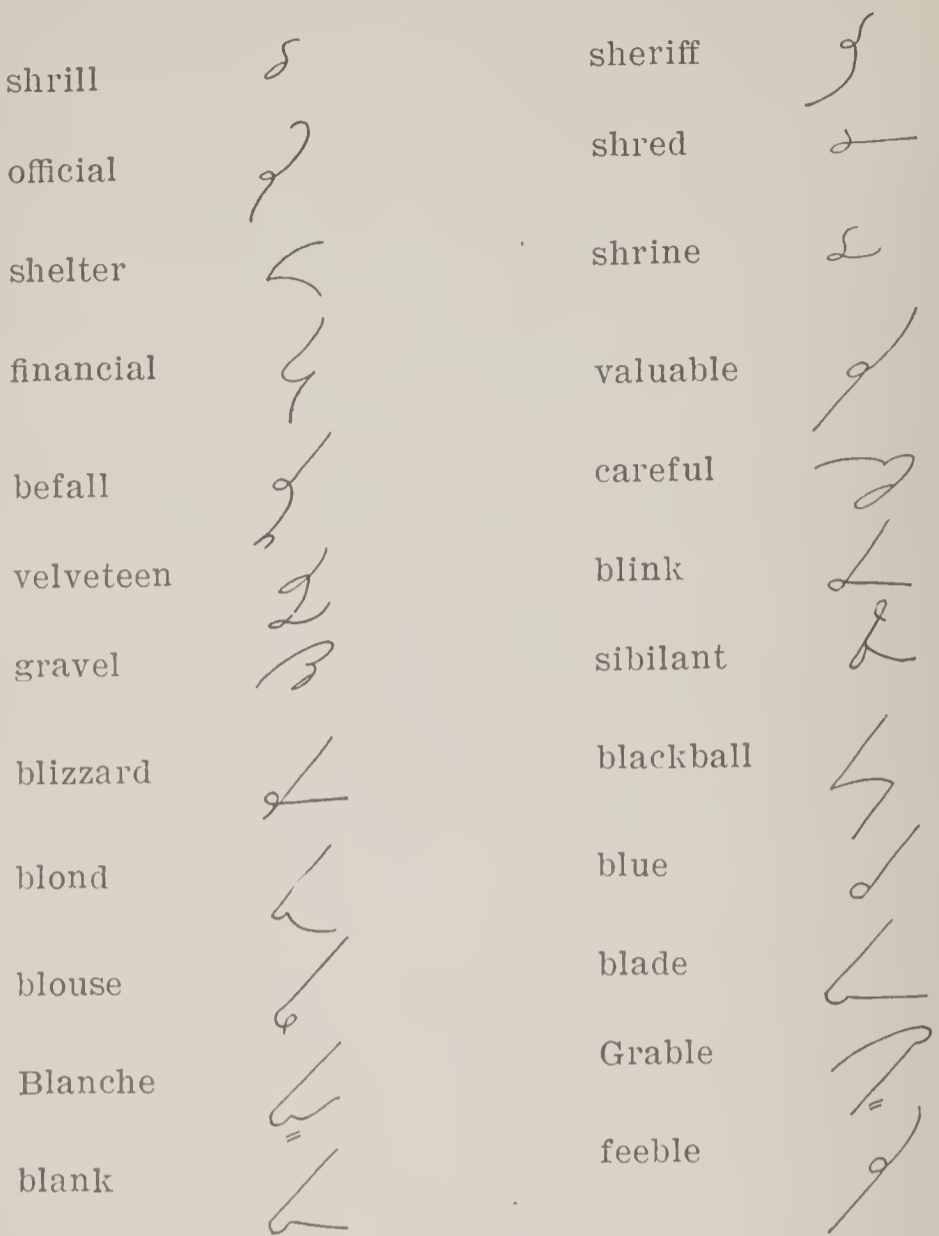 shrill
official
shelter
financial
befall
velveteen
gravel
blizzard
blond
blouse
Blanche
blank
sheriff
shred
shrine
valuable
careful
blink
sibilant
blackball
blue
blade
Grable
feeble